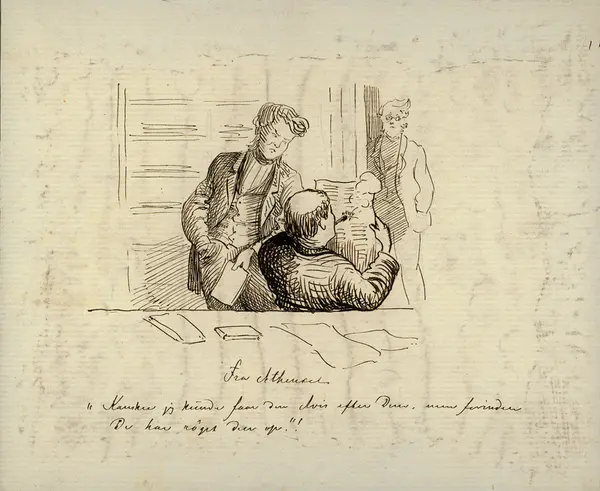 Fra Athenæet
„ Kanskee jeg kunde faae den Avis efter Dem, men forinden
De har röget den op."!